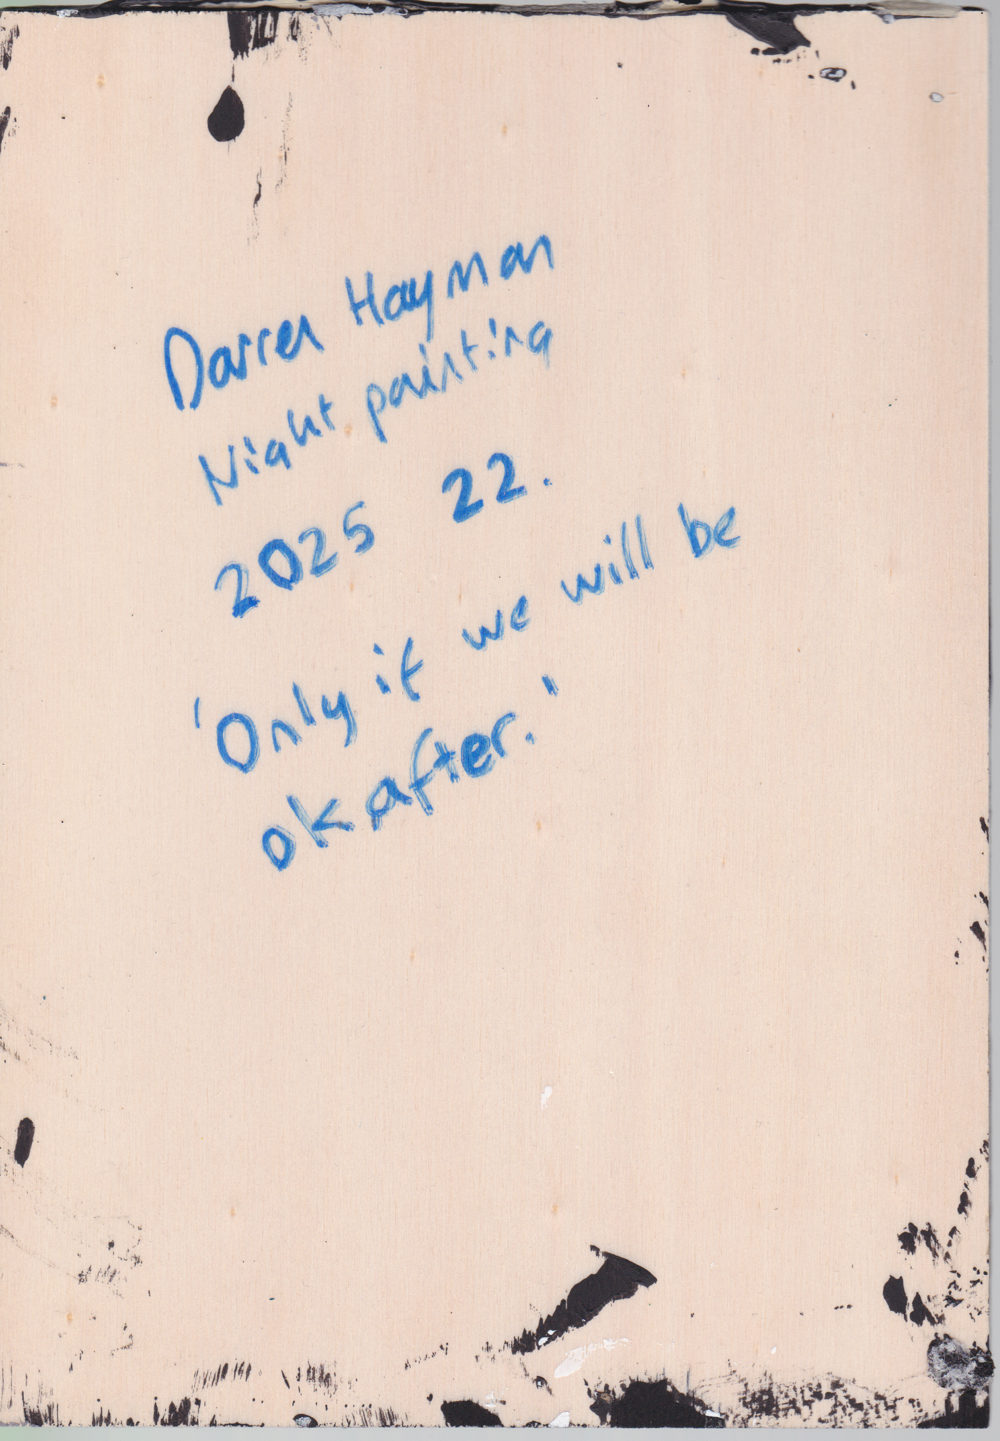 Darren Hayman
Night painting
2025 22.
'Only if we will be
ok after.'